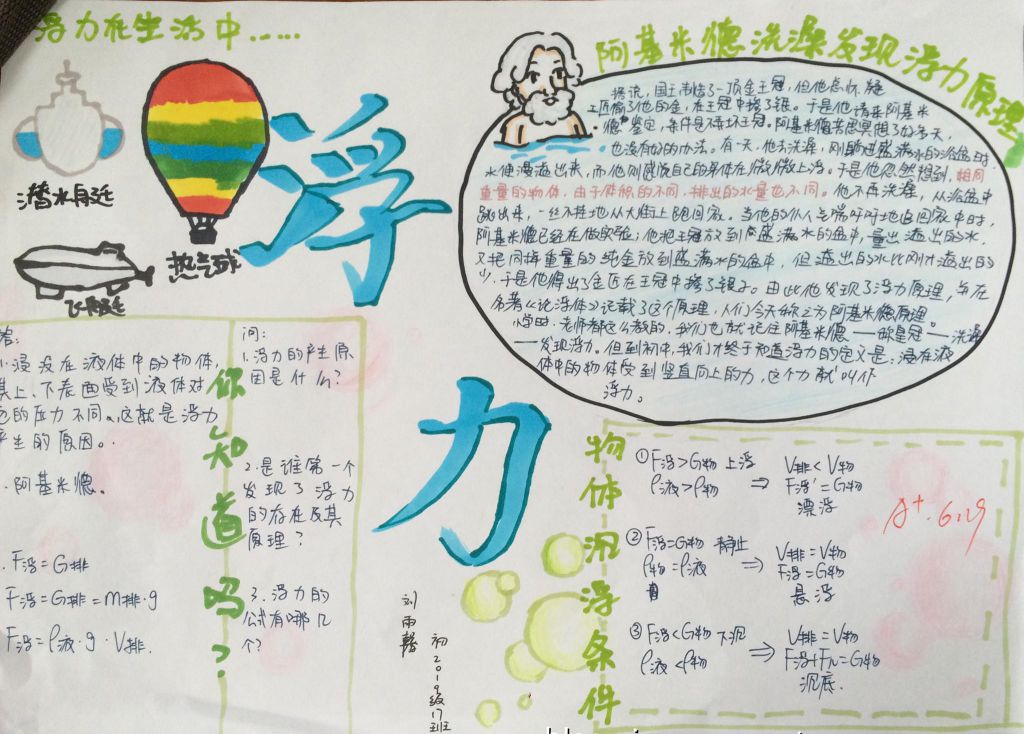 浮力在生活中……
潜水自廷
热气球
飞自廷
浮
力
阿基米德洗澡发现浮力原理
据说，国王制造了一顶金王冠，但他总怀疑
工匠偷了他的金，在王冠中掺了银。于是他请来阿基米
德鉴定，条件是不弄坏王冠。阿基米德苦思冥想了好多天，
也没有好的办法。有一天，他去洗澡，刚躺进盛满水的浴盆时
水便漫溢出来，而他则感觉自己的身体在微微上浮。于是他忽然想到，相同
重量的物体，由于体积的不同，排出的水量也不同。他不再洗澡，从浴盆中
跳出来，一丝不挂地从大街上跑回家。当他的仆人气喘吁吁地追回家中时，
阿基米德已经在做实验：他把王冠放到盛满水的盆中，量出溢出的水，
又把同样重量的纯金放到盛满水的盆中，但溢出的水比刚才溢出的
少，于是他得出了金匠在王冠中掺了银子。由此他发现了浮力原理，并在
名著《论浮体》记载了这个原理，人们今天称之为阿基米德原理。
小学时，老师都这么教的，我们也就记住阿基米德——称皇冠——洗澡
——发现浮力。但到初中，我们才终于知道浮力的定义是：浸在液
体中的物体受到竖直向上的力，这个力就叫作
浮力。
答：
1.浸没在液体中的物体，
其上、下表面受到液体对
它的压力不同。这就是浮力
产生的原因。
.阿基米德。
.F浮=G排
F浮=G排=m排·g
F浮=ρ液·g·V排.
你知道吗？
问：
1.浮力的产生原
因是什么？
2.是谁第一个
发现了浮力
的存在及其
原理？
3.浮力的
公式有哪几
个？
刘雨
初2019级17班
物体沉浮条件
①F浮>G物 上浮
ρ液>ρ物 ⇒
V排<V物
F浮'=G物
漂浮
②F浮=G物 静止
ρ物=ρ液 ⇒
V排=V物
F浮=G物
悬浮
③F浮<G物 下沉
ρ液<ρ物 ⇒
V排=V物
F浮+FN=G物
沉底.
A+. 6.29